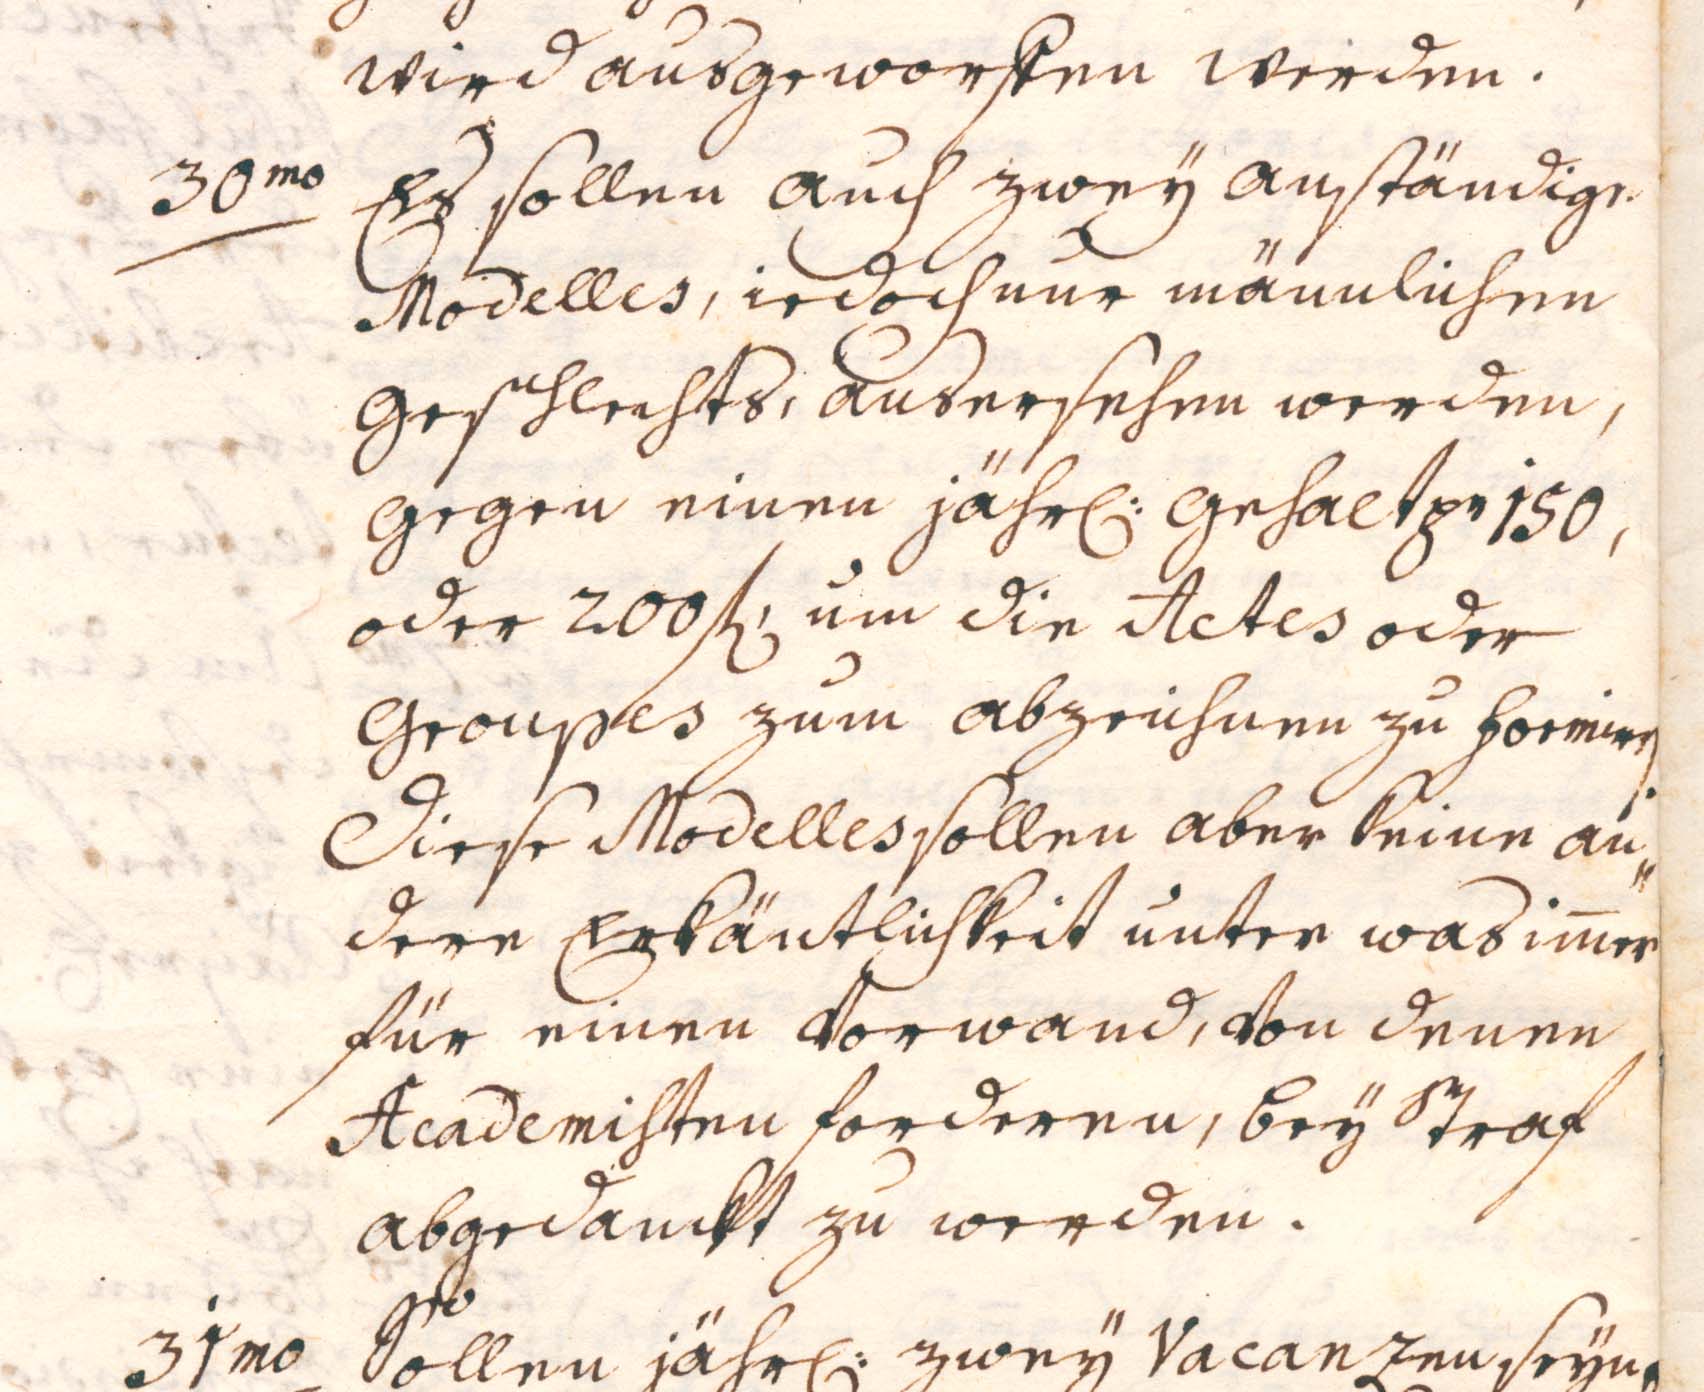 wird ausgeworffen werden.
30mo Es sollen auch zweÿ anständige
Modelles, iedoch nur männlichen
Geschlechts, ausersehen werden,
gegen einen jährl: Gehalt pr 150,
oder 200 fl, um die Actes oder
Groupes zum abzeichnen zu formiren.
Diese Modelles sollen aber keine an„
dere Erkäntlichkeit unter was im̄er
für einen Vorwand, von denen
Academisten forderen, beÿ Straf
abgedanckt zu werden.
31mo Sollen jährl: zweÿ Vacanzen seÿn,